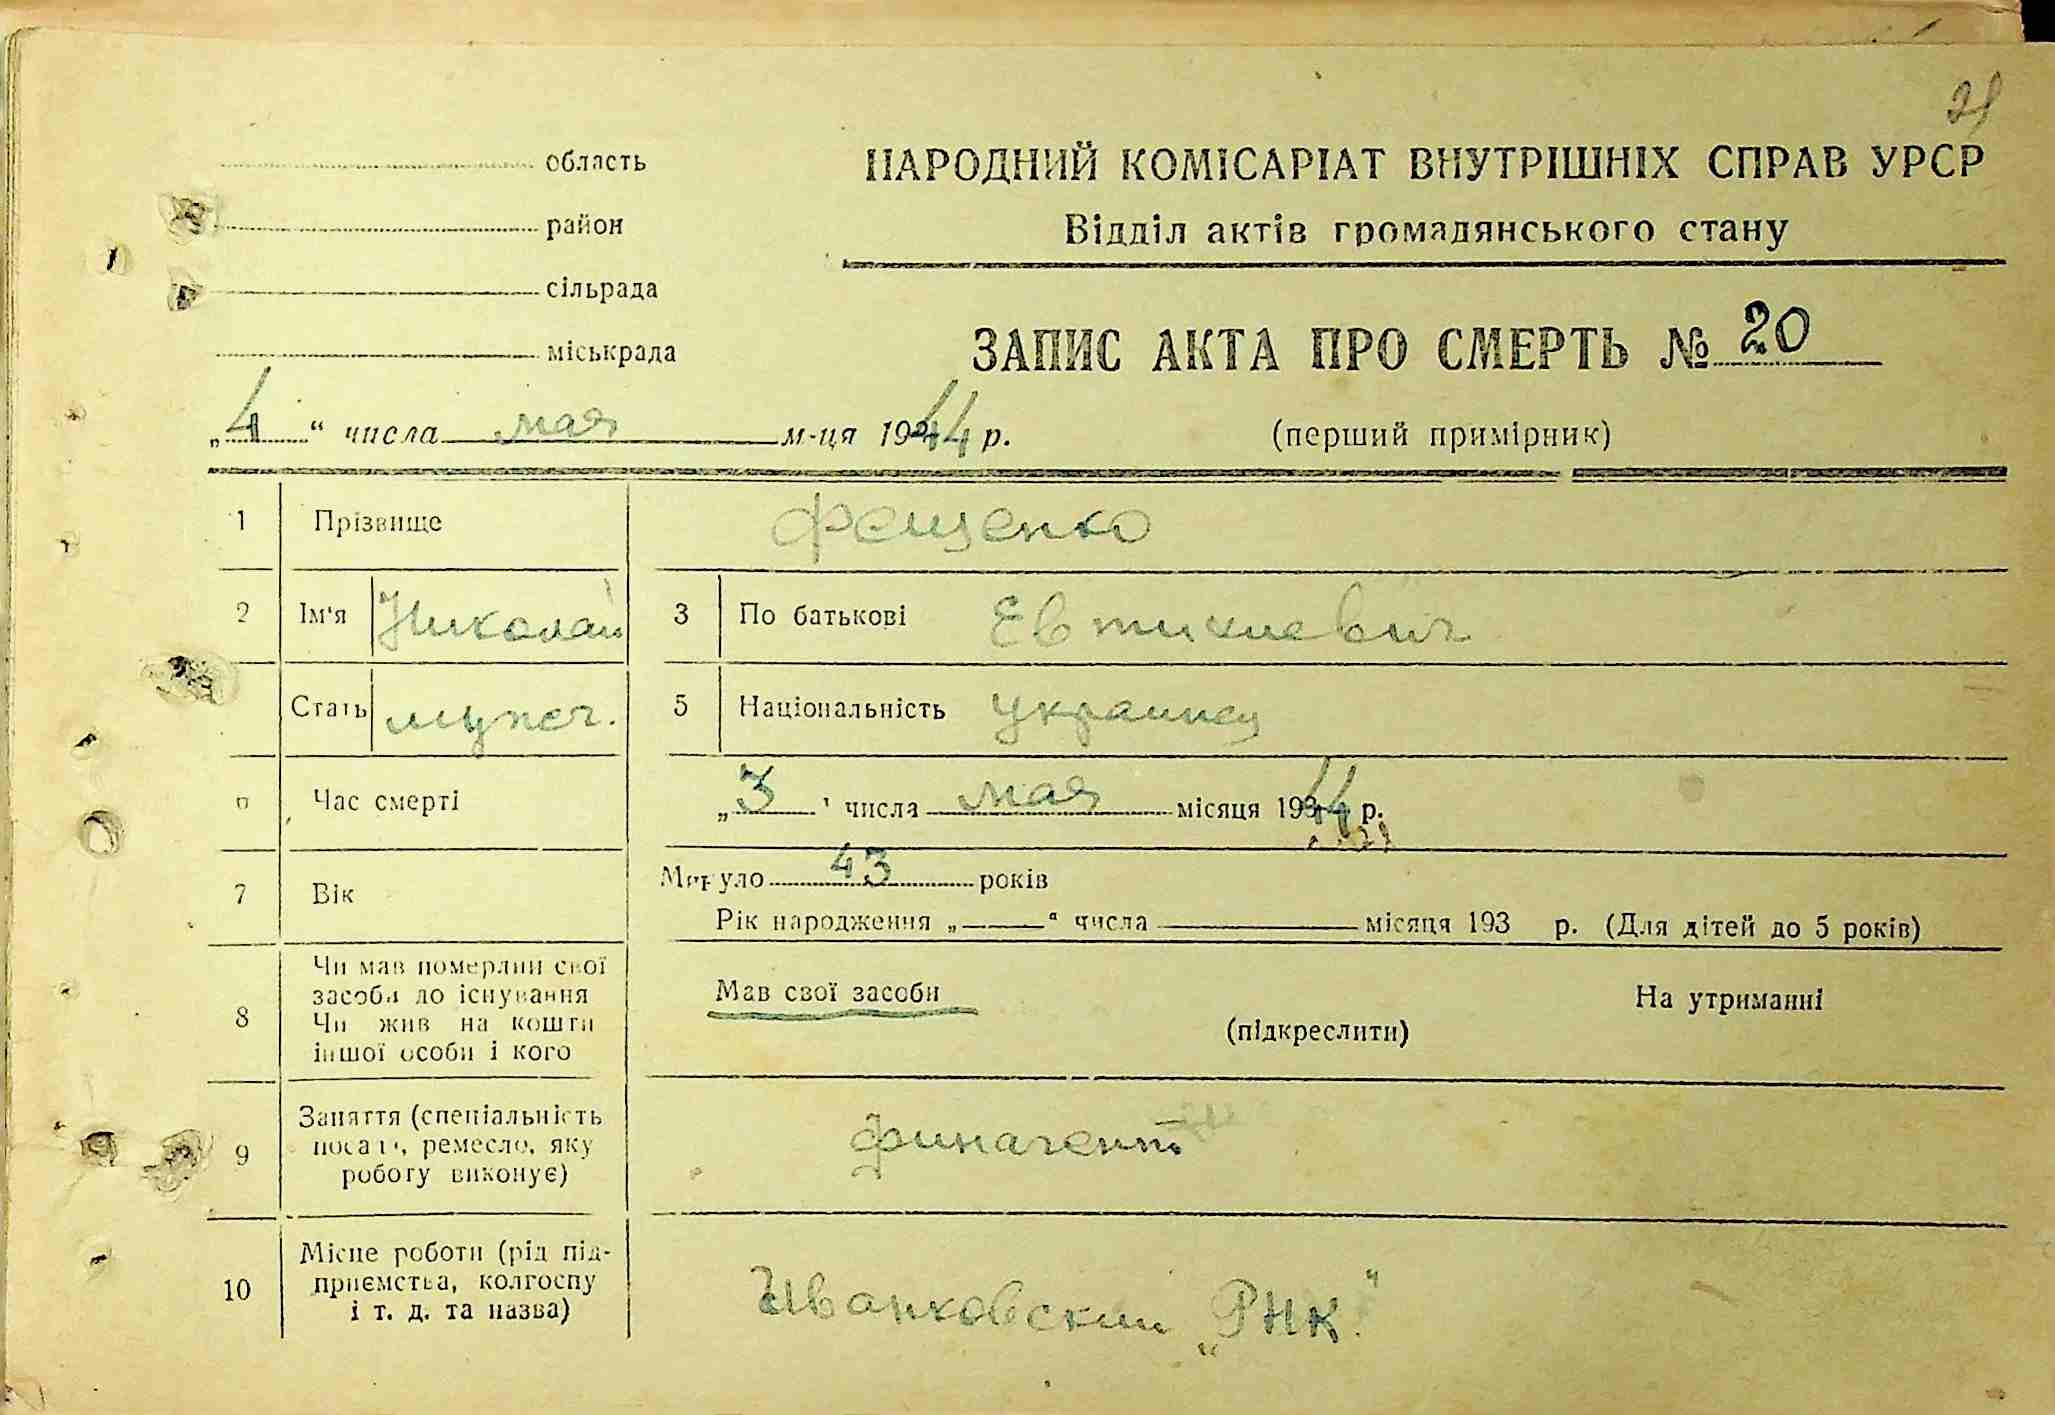 21
область
район
сільрада
міськрада
НАРОДНИЙ КОМІСАРІАТ ВНУТРІШНІХ СПРАВ УРСР
Відділ актів громадянського стану
ЗАПИС АКТА ПРО СМЕРТЬ № 20
(перший примірник)
„4“ числа мая м-ця 1944 р.
1 Прізвище Фещенко
2 Ім'я Николай 3 По батькові Евтихиевич
Стать мужч. 5 Національність украинец
6 Час смерті „3“ числа мая місяця 1944 р.
7 Вік Минуло 43 років
Рік народження „ “ числа місяця 193 р. (Для дітей до 5 років)
8 Чи мав померлий свої
засоби до існування
Чи жив на кошти
іншої особи і кого
Мав свої засоби На утриманні
(підкреслити)
9 Заняття (спеціальність
посада, ремесло, яку
роботу виконує)
финагент
10 Місце роботи (рід під-
приємства, колгоспу
і т. д. та назва)
Иванковский „РНК“